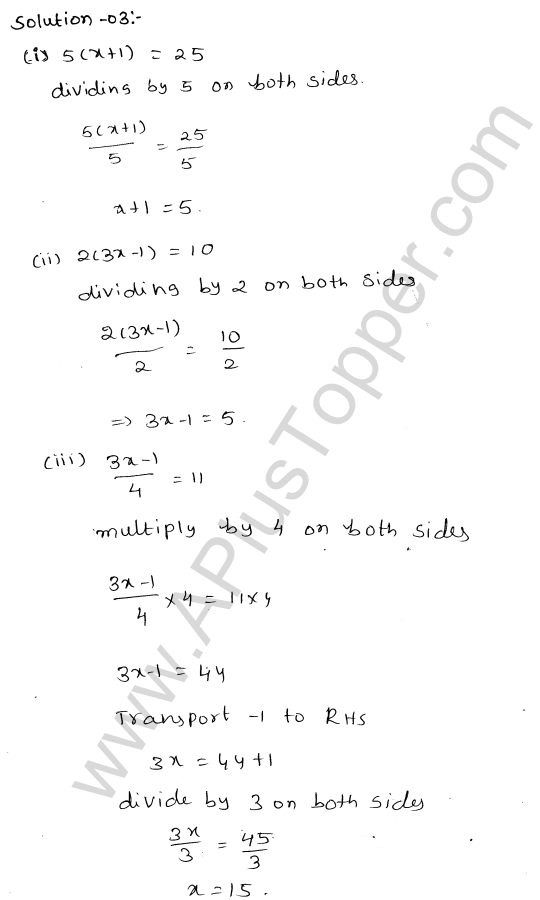 Solution-03:-
(i) 5(x+1) = 25
dividing by 5 on both sides.
5(x+1)/5 = 25/5
x+1 = 5.
(ii) 2(3x-1) = 10
dividing by 2 on both sides
2(3x-1)/2 = 10/2
=> 3x-1 = 5.
(iii) 3x-1/4 = 11
multiply by 4 on both sides
3x-1/4 × 4 = 11×4
3x-1 = 44
Transport -1 to RHS
3x = 44+1
divide by 3 on both sides
3x/3 = 45/3
x = 15.
www.APlusTopper.com